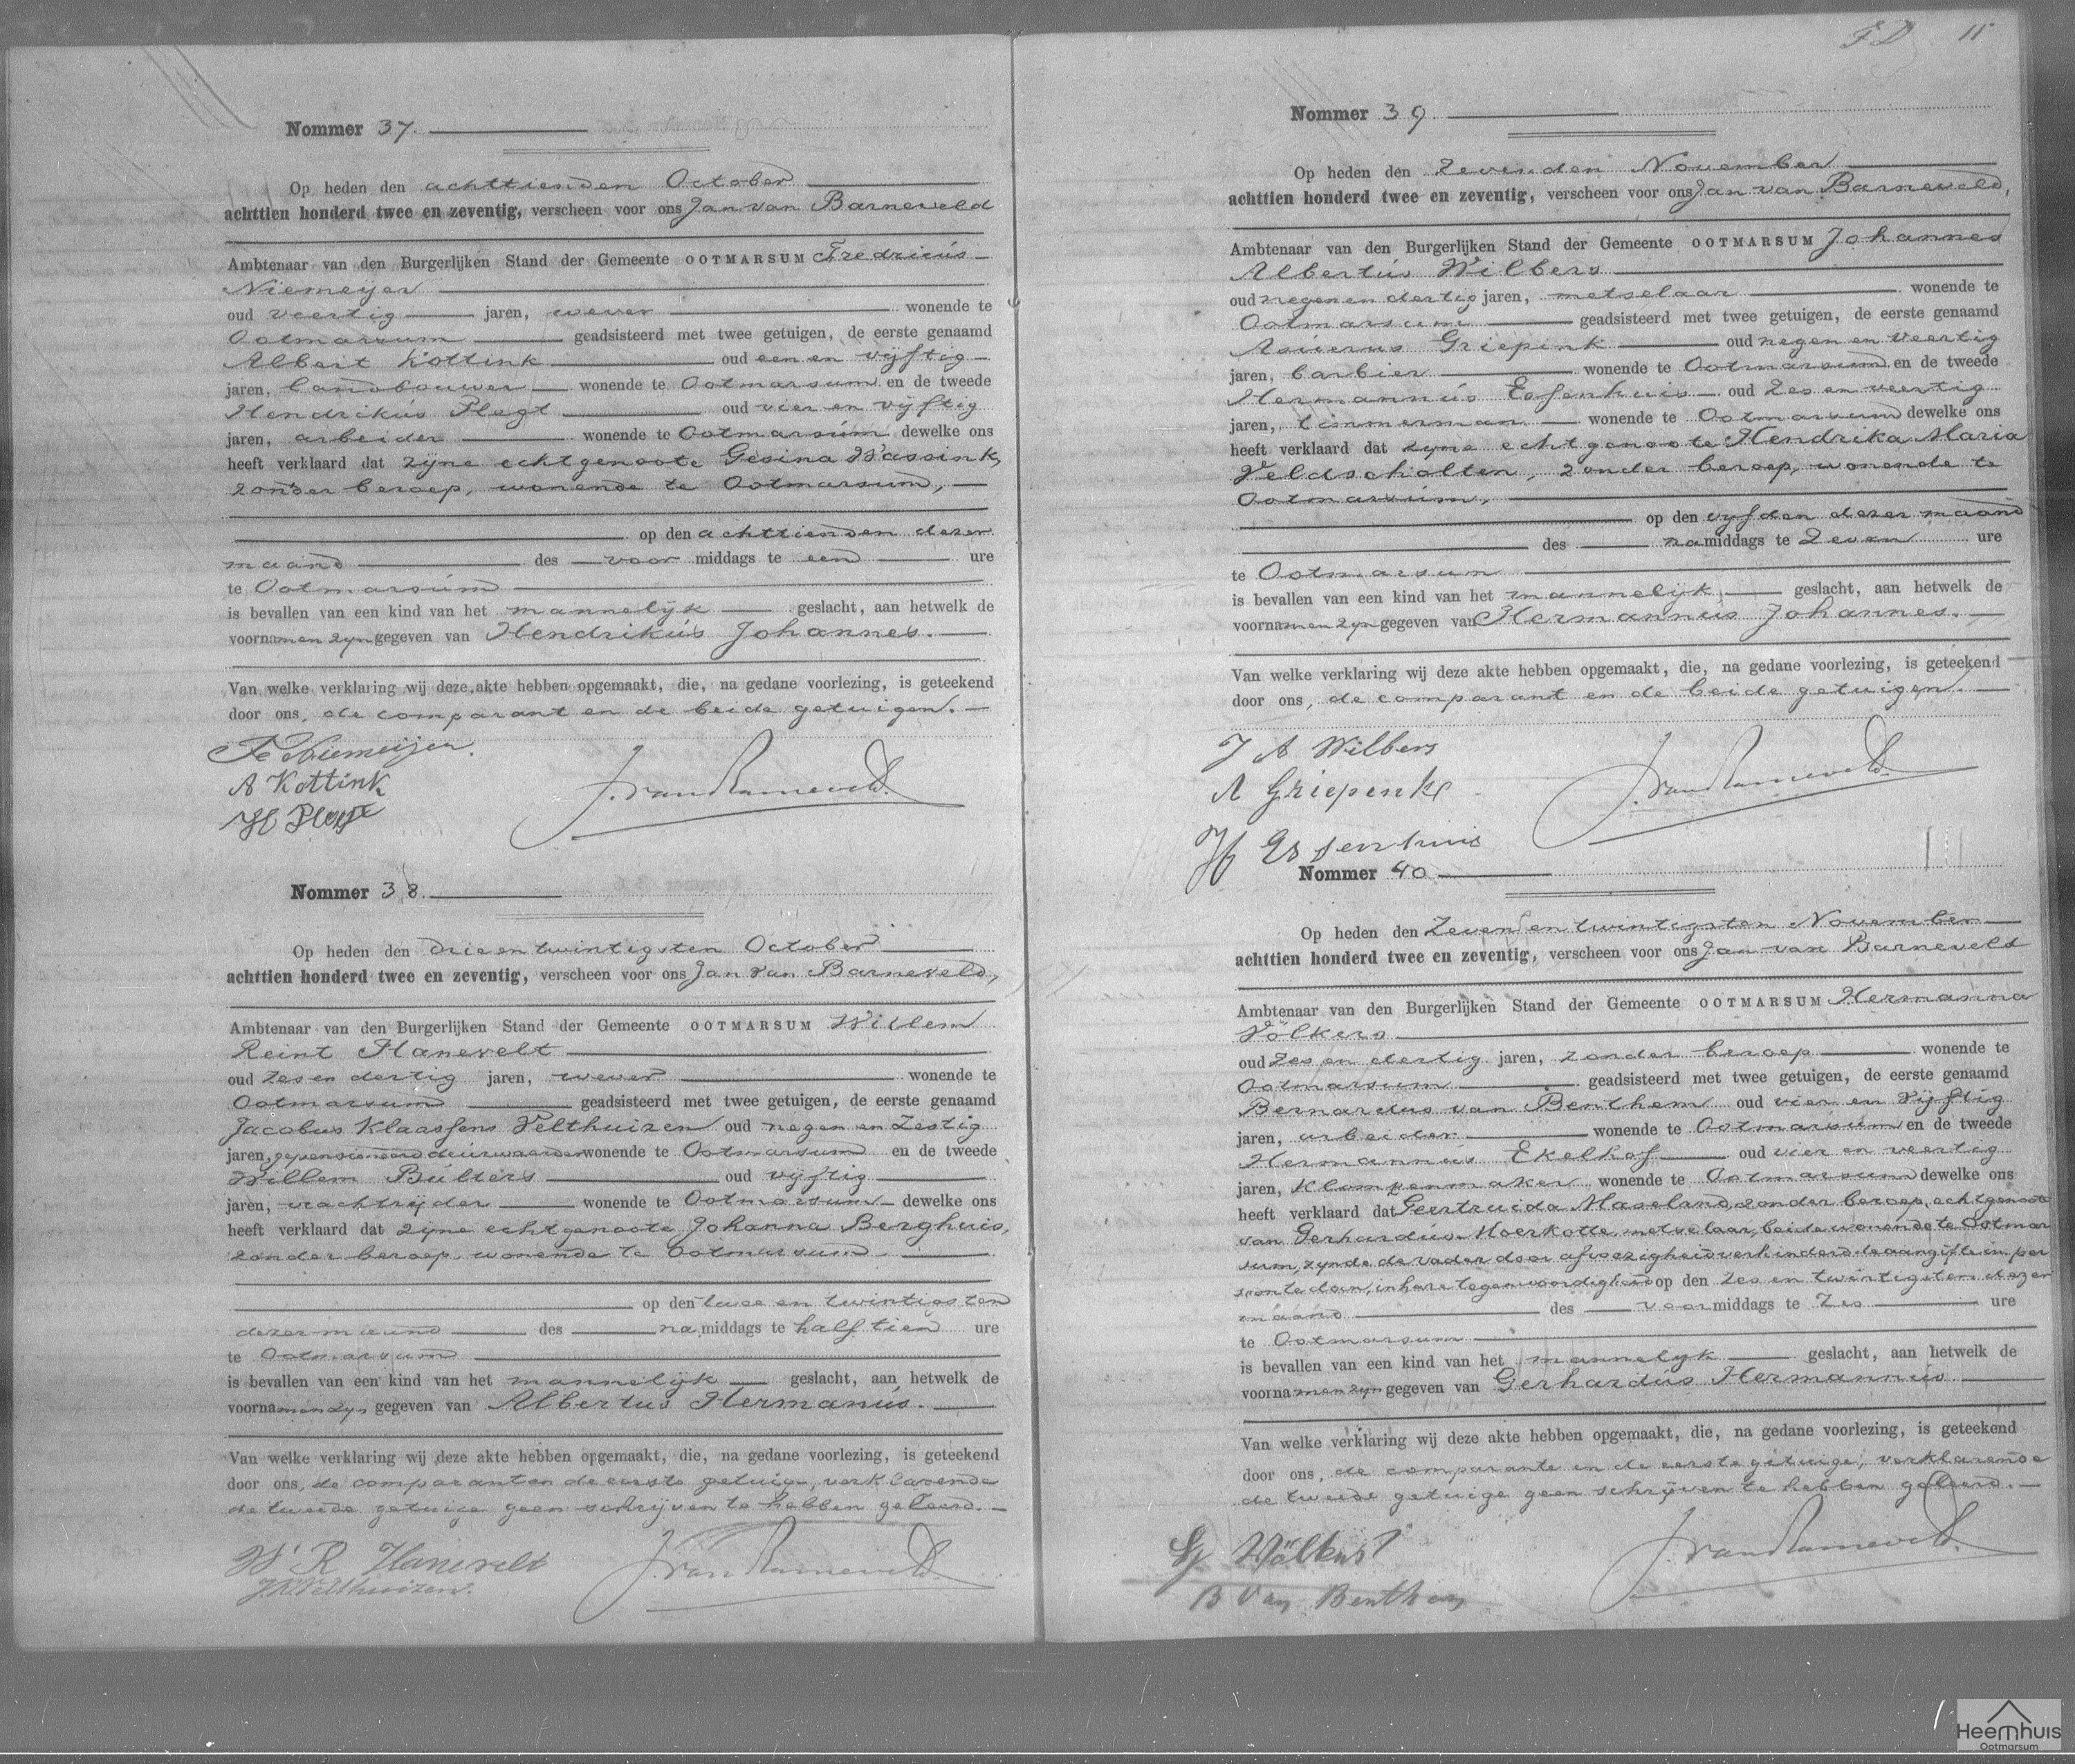 Nommer 37.
Op heden den achttienden October
achttien honderd twee en zeventig, verscheen voor ons Jan van Barneveld
Ambtenaar van den Burgerlijken Stand der Gemeente OOTMARSUM Fredricús
Niemeyer
oud veertig jaren, wever wonende te
Ootmarsum geadsisteerd met twee getuigen, de eerste genaamd
Albert Kottink oud een en vijftig
jaren, landbouwer wonende te Ootmarsum en de tweede
Hendrikús Plegt oud vier en vijftig
jaren, arbeider wonende te Ootmarsúm dewelke ons
heeft verklaard dat zijne echtgenoote Gesina Wassink,
zonder beroep, wonende te Ootmarsum,
op den achttienden dezer
maand des voor middags te een ure
te Ootmarsúm
is bevallen van een kind van het mannelijk geslacht, aan hetwelk de
voornamen zyn gegeven van Hendrikús Johannes.
Van welke verklaring wij deze akte hebben opgemaakt, die, na gedane voorlezing, is geteekend
door ons, de comparant en de beide getuigen.
Fe Niemeijer.
A Kottink
H Plegt
J. van Barneveld.
Nommer 38.
Op heden den drie en twintigsten October
achttien honderd twee en zeventig, verscheen voor ons Jan van Barneveld,
Ambtenaar van den Burgerlijken Stand der Gemeente OOTMARSUM Willem
Reint Hanevelt
oud zes en dertig jaren, wever wonende te
Ootmarsum geadsisteerd met twee getuigen, de eerste genaamd
Jacobus Klaassens Velthuizen oud negen en zestig
jaren, gepensioneerd deurwaarder wonende te Ootmarsum en de tweede
Willem Búlters oud vijftig
jaren, vrachtrijder wonende te Ootmarsum dewelke ons
heeft verklaard dat zijne echtgenoote Johanna Berghuis,
zonder beroep wonende te Ootmarsum.
op den twee en twintigsten
dezer maand des na middags te half tien ure
te Ootmarsum
is bevallen van een kind van het mannelijk geslacht, aan hetwelk de
voornamen zyn gegeven van Albertus Hermanús.
Van welke verklaring wij deze akte hebben opgemaakt, die, na gedane voorlezing, is geteekend
door ons, de comparant en de eerste getuige, verklarende
de tweede getuige geen schrijven te hebben geleerd.
W R Hanevelt
J.K. Velthuizen.
J. van Barneveld.
11
Nommer 39.
Op heden den Zevenden November
achttien honderd twee en zeventig, verscheen voor ons Jan van Barneveld,
Ambtenaar van den Burgerlijken Stand der Gemeente OOTMARSUM Johannes
Albertús Wilbers
oud negen en dertig jaren, metselaar wonende te
Ootmarsum geadsisteerd met twee getuigen, de eerste genaamd
Griepink oud negen en veertig
jaren, barbier wonende te Ootmarsum en de tweede
Hermannús Essenhuis oud zes en veertig
jaren, timmerman wonende te Ootmarsum dewelke ons
heeft verklaard dat zijne echtgenoote Hendrika Maria
Veldscholten, zonder beroep, wonende te
Ootmarsum,
op den vijfden dezer maand
des namiddags te zeven ure
te Ootmarsum
is bevallen van een kind van het mannelijk geslacht, aan hetwelk de
voornamen zyn gegeven van Hermannús Johannes.
Van welke verklaring wij deze akte hebben opgemaakt, die, na gedane voorlezing, is geteekend
door ons, de comparant en de beide getuigen.
J A Wilbers
A Griepenk
H Essenhuis
J. van Barneveld.
Nommer 40
Op heden den Zeven en twintigsten November
achttien honderd twee en zeventig, verscheen voor ons Jan van Barneveld
Ambtenaar van den Burgerlijken Stand der Gemeente OOTMARSUM Hermanna
Völkers
oud zes en dertig jaren, zonder beroep wonende te
Ootmarsum geadsisteerd met twee getuigen, de eerste genaamd
Bernardus van Benthem oud vier en vijftig
jaren, arbeider wonende te Ootmarsúm en de tweede
Hermannus Ekelhof oud vier en veertig
jaren, klompenmaker wonende te Ootmarsum dewelke ons
heeft verklaard dat Geertruida Maseland, zonder beroep, echtgenoote
van Gerhardús Moerkotte, metselaar, beide wonende te Ootmar
sum, zynde de vader door afwezigheid verhinderd de aangifte in per
soon te doen, in hare tegenwoordigheid op den zes en twintigsten dezer
maand des voormiddags te zes ure
te Ootmarsum
is bevallen van een kind van het mannelijk geslacht, aan hetwelk de
voornamen zyn gegeven van Gerhardús Hermannús
Van welke verklaring wij deze akte hebben opgemaakt, die, na gedane voorlezing, is geteekend
door ons, de comparante en de eerste getuige, verklarende
de tweede getuige geen schrijven te hebben geleerd.
Völkers
B Van Benthem
J. van Barneveld.
Heemhuis
Ootmarsum